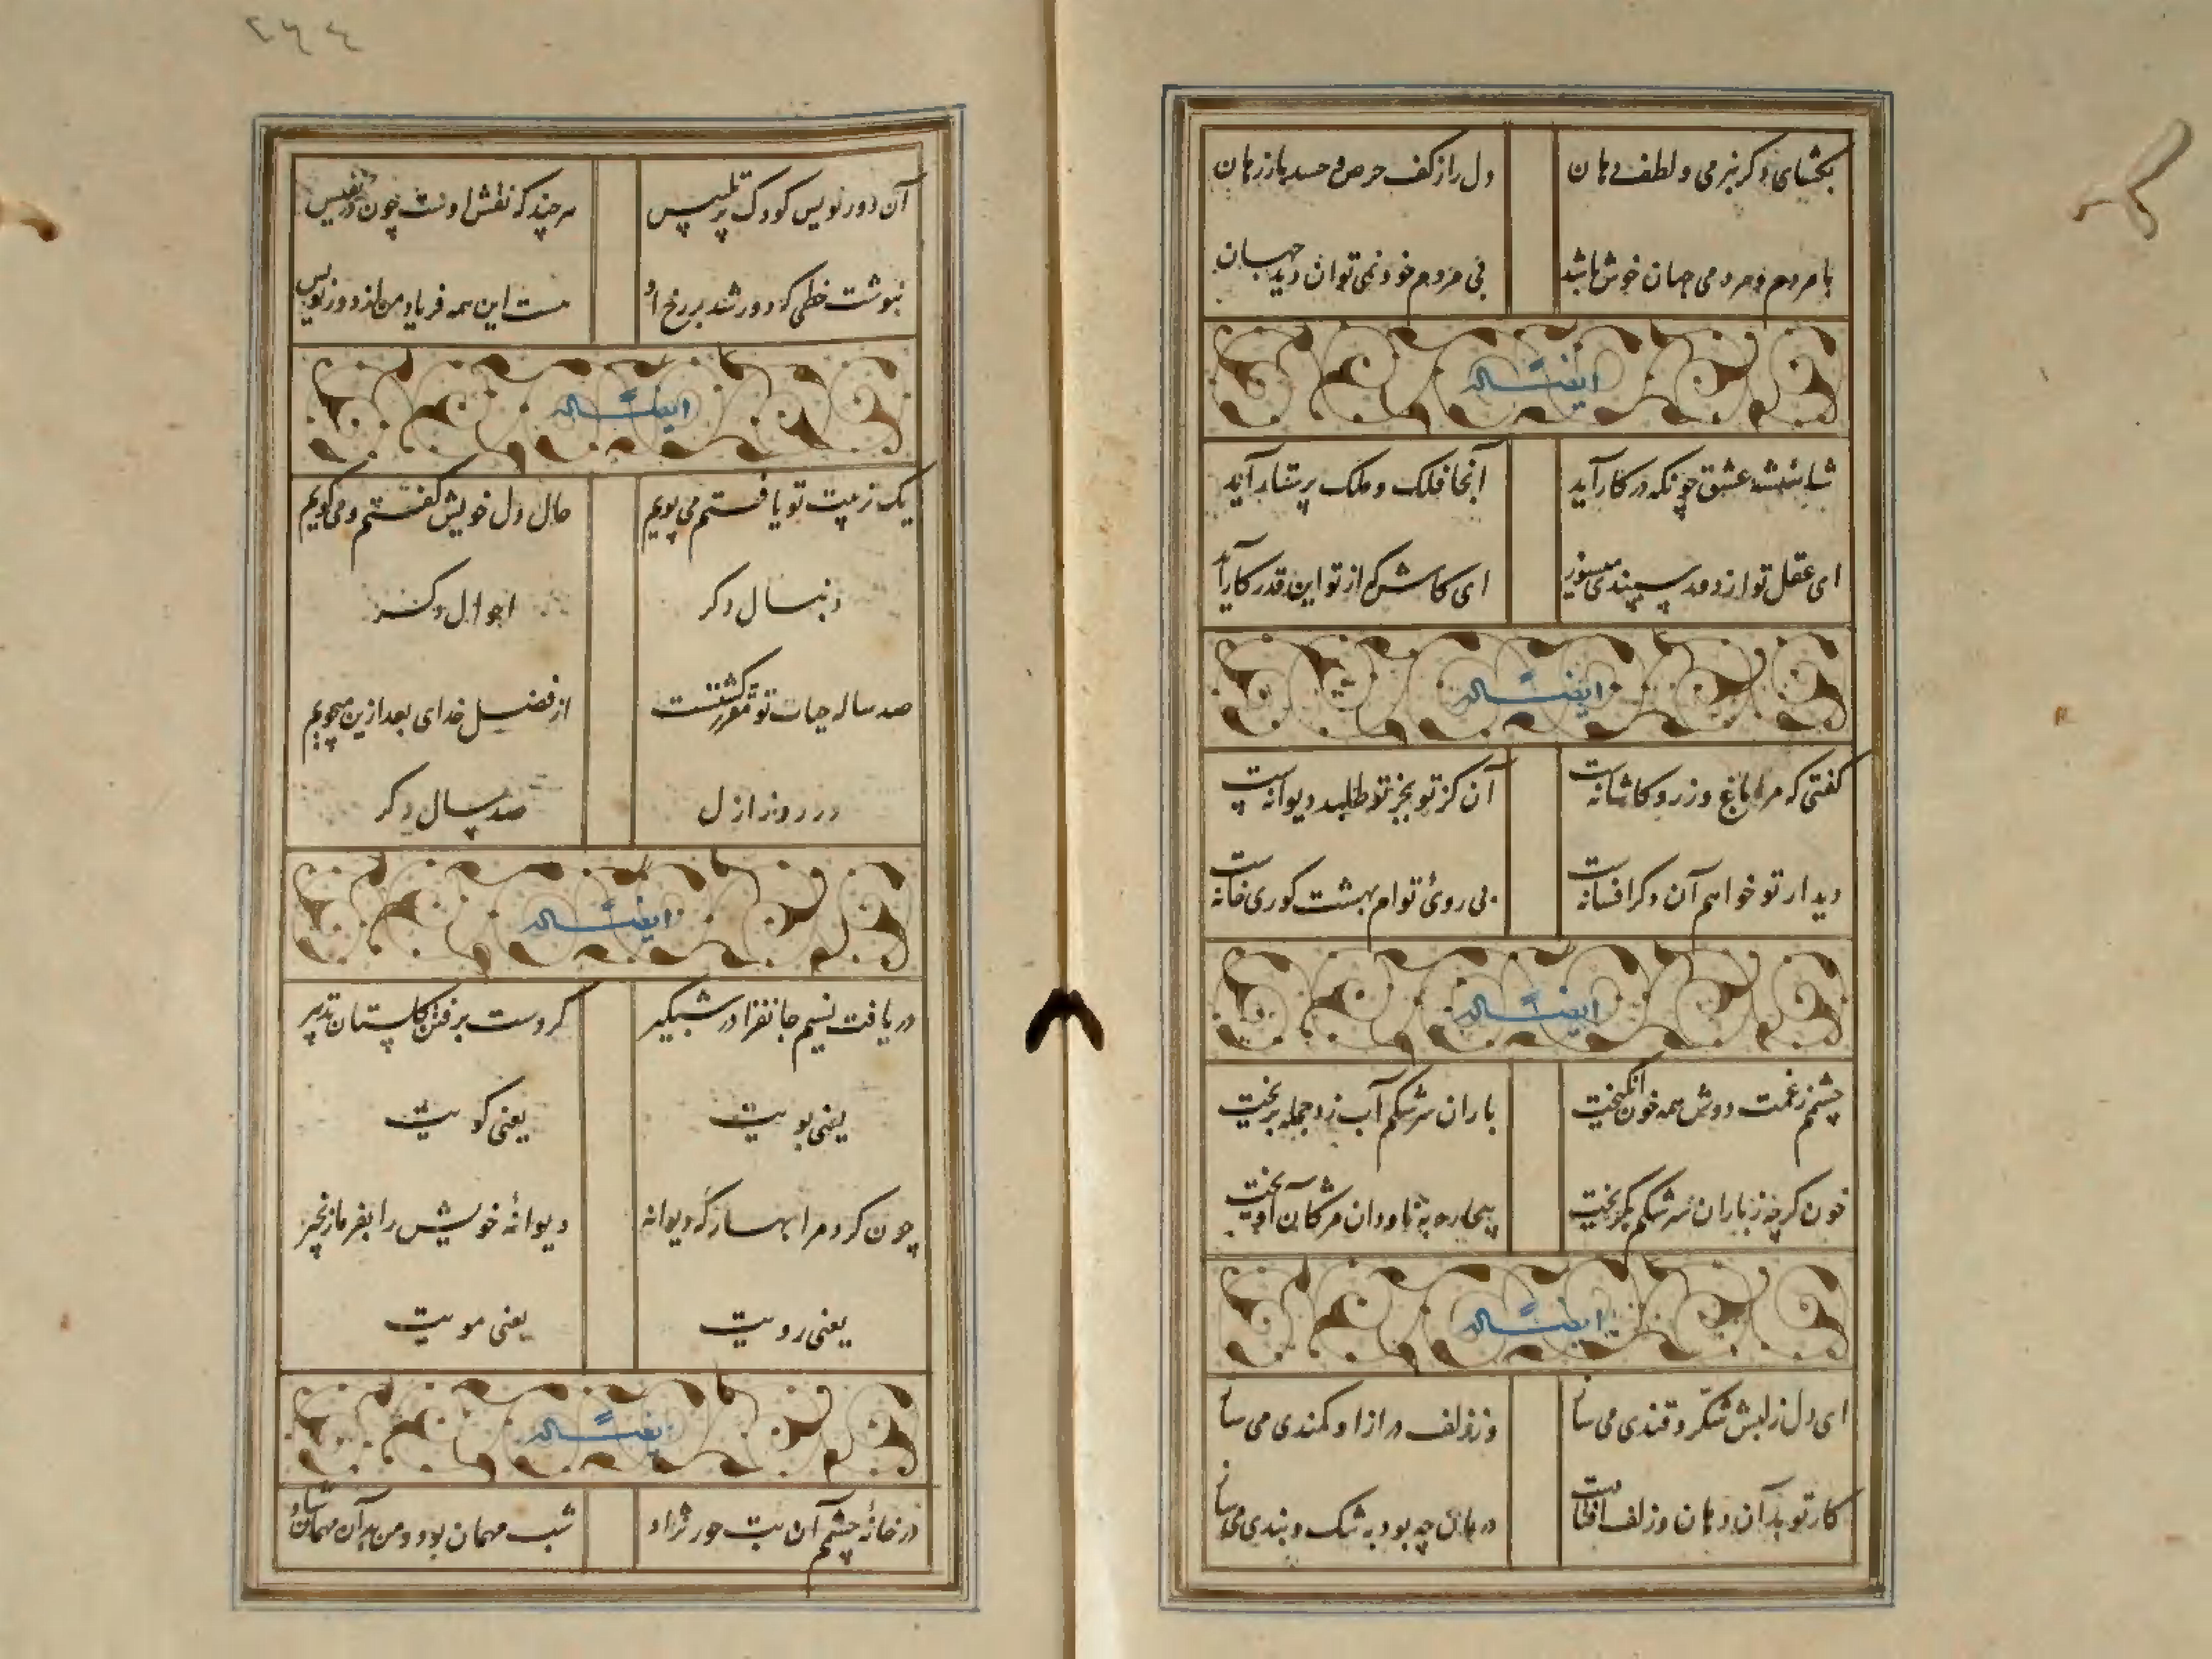 بخشای دگر بنرمی و لطف دهان
دل را ز کف حرص و حسد باز رهان
با مردم و مردمی جهان خوش باشد
بی مردم خود نمی توان دید جهان
ایضاً له
شاهنشه عشق چونکه در کار آید
آنجا فلک و ملک پرستار آید
ای عقل تو از دور سپندی میسوز
ای کاش که از تو این قدر کار آید
ایضاً له
گفتی که مرا باغ و زر و کاشانه‌ست
آن کز تو بجز تو طلبد دیوانه‌ست
دیدار تو خواهم آن دگر افسانه‌ست
بی روی توام بهشت کوری خانه‌ست
ایضاً له
چشمم ز غمت دوش همه خون انگیخت
باران سرشکم آب زد جمله بریخت
خون گرچه ز باران سرشکم بگریخت
بیچاره به ناودان مژگان آویخت
ایضاً له
ای دل ز لبش شکر و قندی می‌سا
وز زلف دراز او کمندی می‌سا
کار تو بدان دهان و زلف افتادست
درمان چه بود به شک و بندی می‌سا
٢٦٤
آن دور نویس کودک پر تلبیس
هر چند که نقش اوست چون در نفیس
ننوشت خطی که دور شد بر رخ او
هست این همه فریاد من از دور نویس
ایضاً له
یک ز پیت تو یافتم می‌پویم
حال دل خویش گفتم و می‌گویم
دنبال دگر
احوال دگر
صد ساله حیات تو مقرر گشتست
از فضل خدای بعد ازین می‌جویم
در روز ازل
صد سال دگر
ایضاً له
دریافت نسیم جانفزا در شبگیر
کردست برفتن گلستان تدبیر
یعنی بویت
یعنی کویت
چون کرد مرا بهار گه دیوانه
دیوانهٔ خویش را بفرما زنجیر
یعنی رویت
یعنی مویت
ایضاً له
در خانهٔ چشمم آن بت حور نژاد
شب مهمان بود و من بدان مهمان شاد